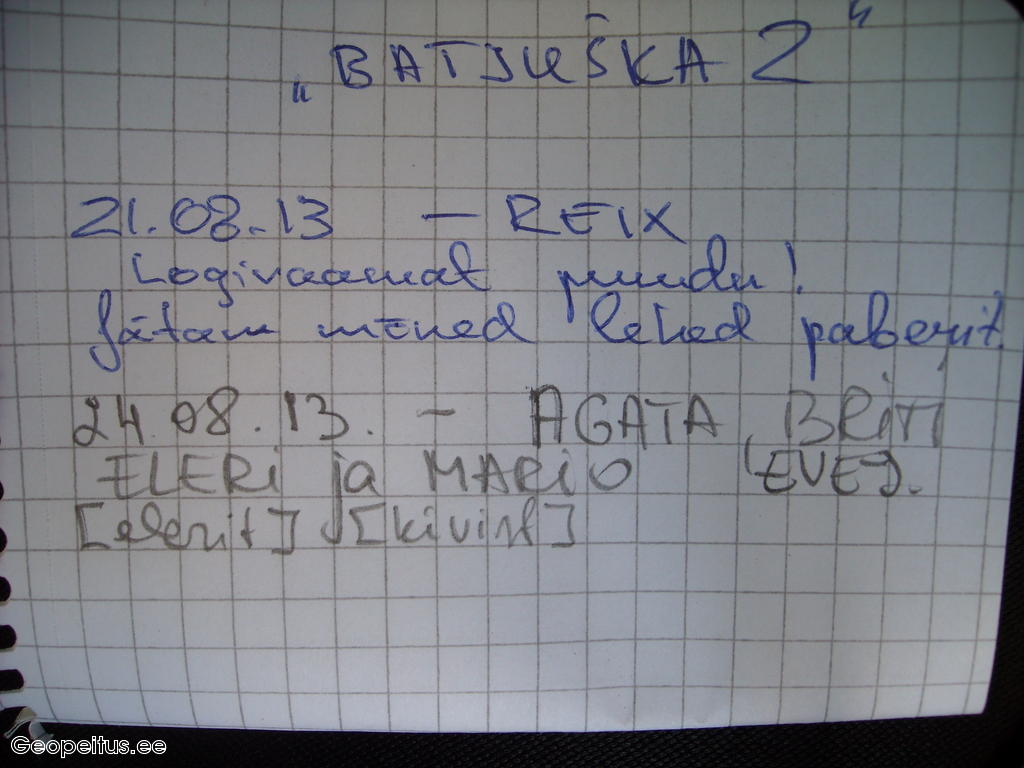 „BATJUŠKA 2"
21.08.13 – REIX
Logiraamat puudu!
Jätan mõned lehed paberit.
24.08.13. – AGATA, BRITI
ELERI ja MARIO (EVEJ.
[elerit] [kivist]
Geopeitus.ee